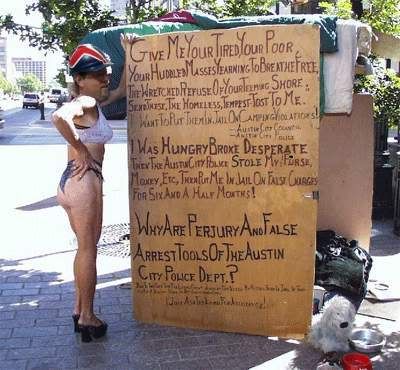 Give Me Your Tired Your Poor,
Your Huddled Masses Yearning To Breathe Free,
The Wretched Refuse Of Your Teeming Shore:
Send These, The Homeless, Tempest Tost To Me.
I Want To Put Them In Jail On Camping Violations!
–Austin City Council
–Austin City Police
I Was Hungry Broke Desperate
Then The Austin City Police Stole My Purse,
Money, Etc, Then Put Me In Jail On False Charges
For Six And A Half Months!
Why Are Perjury And False
Arrest Tools Of The Austin
City Police Dept.?